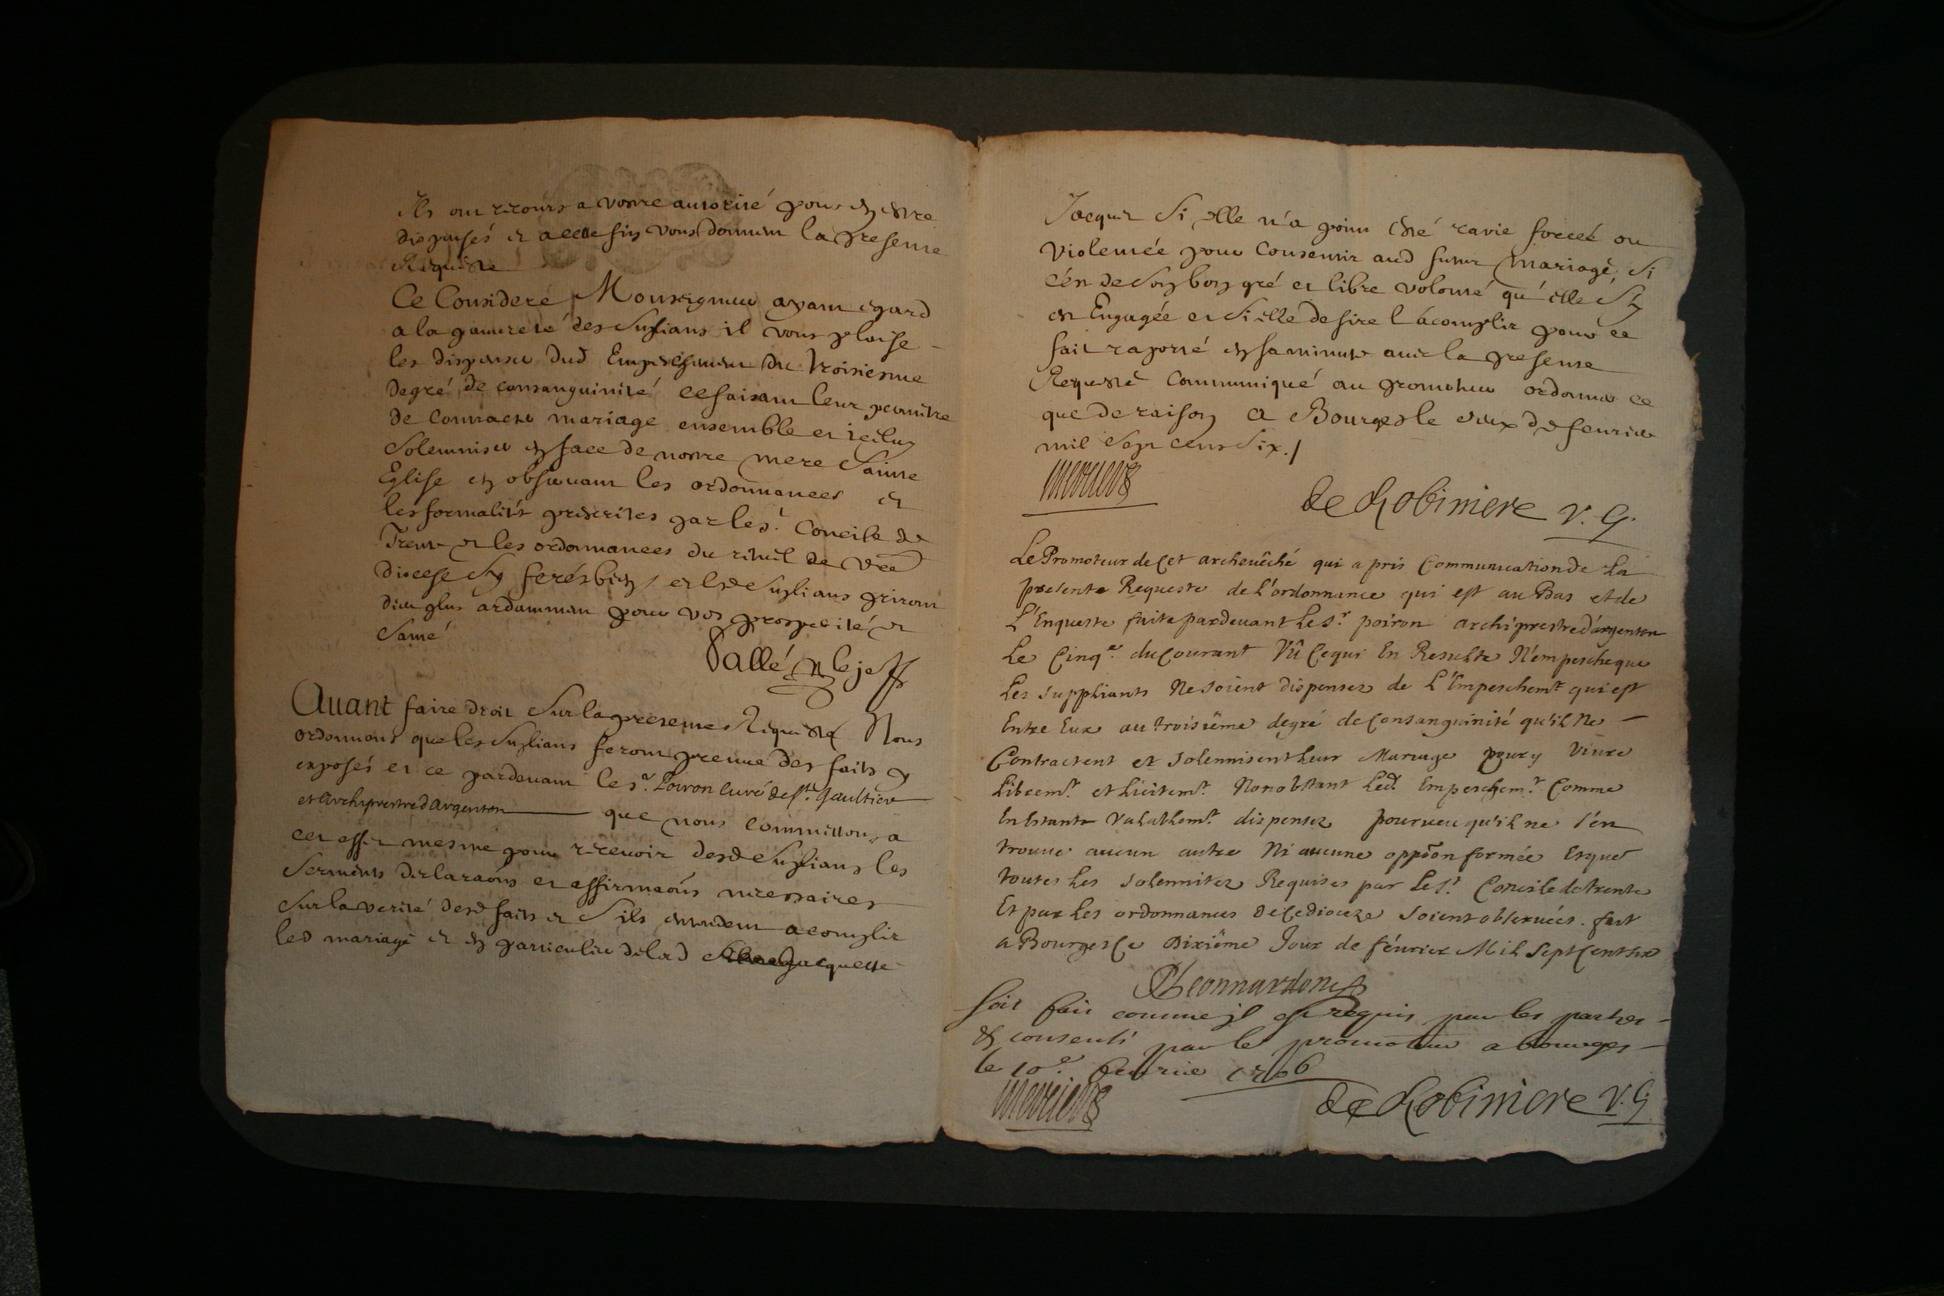 Ils ont recours a vostre autorité pour en estre
dispensés et a cette fin vous donnent la presente
Requeste
Ce Consideré Monseigneur ayant egard
a la pauvreté des suplians il vous plaise
les dispenser dud Empeschement du troisiesme
degré de consanguinité ce faisant leur permettre
de contracter mariage ensemble et icelluy
solemniser en face de nostre mere Sainte
Eglise en observant les ordonnances et
les formalités prescrites par le st Concile de
Trente et les ordonnances du rituel de vre
diocese Et ferés bien / et lesd suplians priront
dieu plus ardamment pour vos prosperité et
santé
Vallé
Avant faire droit sur la presente Requeste Nous
ordonnons que les suplians feront preuve des faits y
exposés et ce pardevant le sr. Poiron curé de st. Gaultier
et archiprestre d'argenton que nous commettons a
cet effet mesme pour recevoir desd suplians les
serments declaraõns et affirmaõns necessaires
sur la verité desd faits et s'ils entendent acomplir
led mariage et en particulier de lad Jacquette
Jacquet si elle n'a point esté ravie forcée ou
violentée pour consentir aud futur mariage, si
c'est de son bon gré et libre volonté qu'elle s'y
est Engagée et si elle desire l'acomplir pour ce
fait raporté en sa minute avec la presente
Requeste communiqué au promoteur ordonner ce
que de raison a Bourges le deux de fevrier
mil sept cens six. /
de Robiniere V. G.
Le Promoteur de Cet archevêché qui a pris Communication de La
presente Requeste de L'ordonnance qui est au Bas et de
L'Enqueste faite pardevant Le Sr. poiron archiprestre d'argenton
Le Cinqe. du Courant Vû Ce qui En Resulte N'empesche que
Les suppliants Ne soient dispensez de L'Empeschemt. qui est
Entre Eux au troisiême degré de Consanguinité qu'il Ne
Contractent et solemnisent Leur Mariage pour y Vivre
Libremt. et Licitemt. Nonobstant Led. Empeschemt. Comme
En Estants Valablemt. dispensez pourveu qu'il ne s'en
trouve aucun autre Ni aucune oppõon formée Et que
toutes Les solennitez Requises par Le St. Concile de trente
Et par Les ordonnances de Ce dioceze soient observées. fait
a Bourges Ce Dixiême Jour de février Mil Sept Cent six
Leonnardon
soit fait comme il est requis par les parties
& consenti par le promoteur a bourges
le 10e. fevrier 1706
de Robiniere V. G.